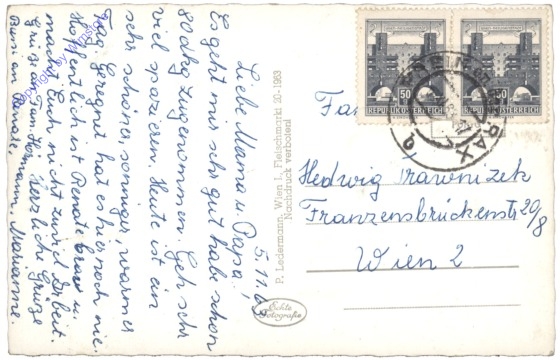 5.11.63
Liebe Mama u. Papa!
Es geht mir sehr gut habe schon
80 dkg zugenommen. Geh sehr
viel spazieren. Heute ist ein
sehr schöner, sonniger, warmer
Tag. Geregnet hat es hier noch nie.
Hoffentlich ist Renate brav u.
macht Euch nicht zuviel Arbeit.
Herzliche Grüße
Marianne.
P. Ledermann, Wien I., Fleischmarkt 20 - 1963
Nachdruck verboten!
Echte
Fotografie
50
REPUBLIK ÖSTERREICH
50
REPUBLIK ÖSTERREICH
Hedwig Trawniczek
Franzensbrückenstr 20/8
Wien 2